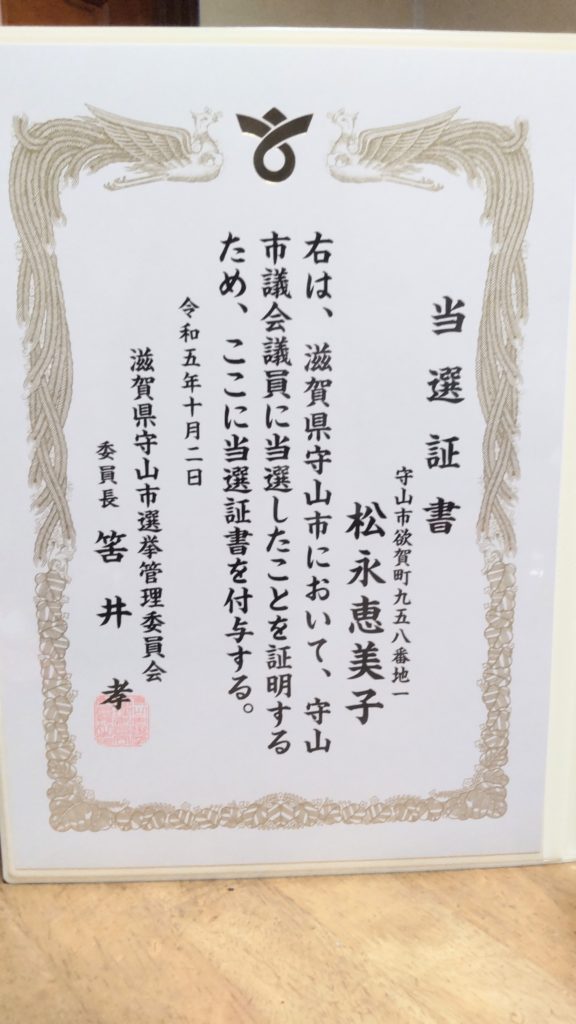 当選証書
守山市欲賀町九五八番地一
松永恵美子
右は、滋賀県守山市において、守山
市議会議員に当選したことを証明する
ため、ここに当選証書を付与する。
令和五年十月二日
滋賀県守山市選挙管理委員会
委員長 筈井孝